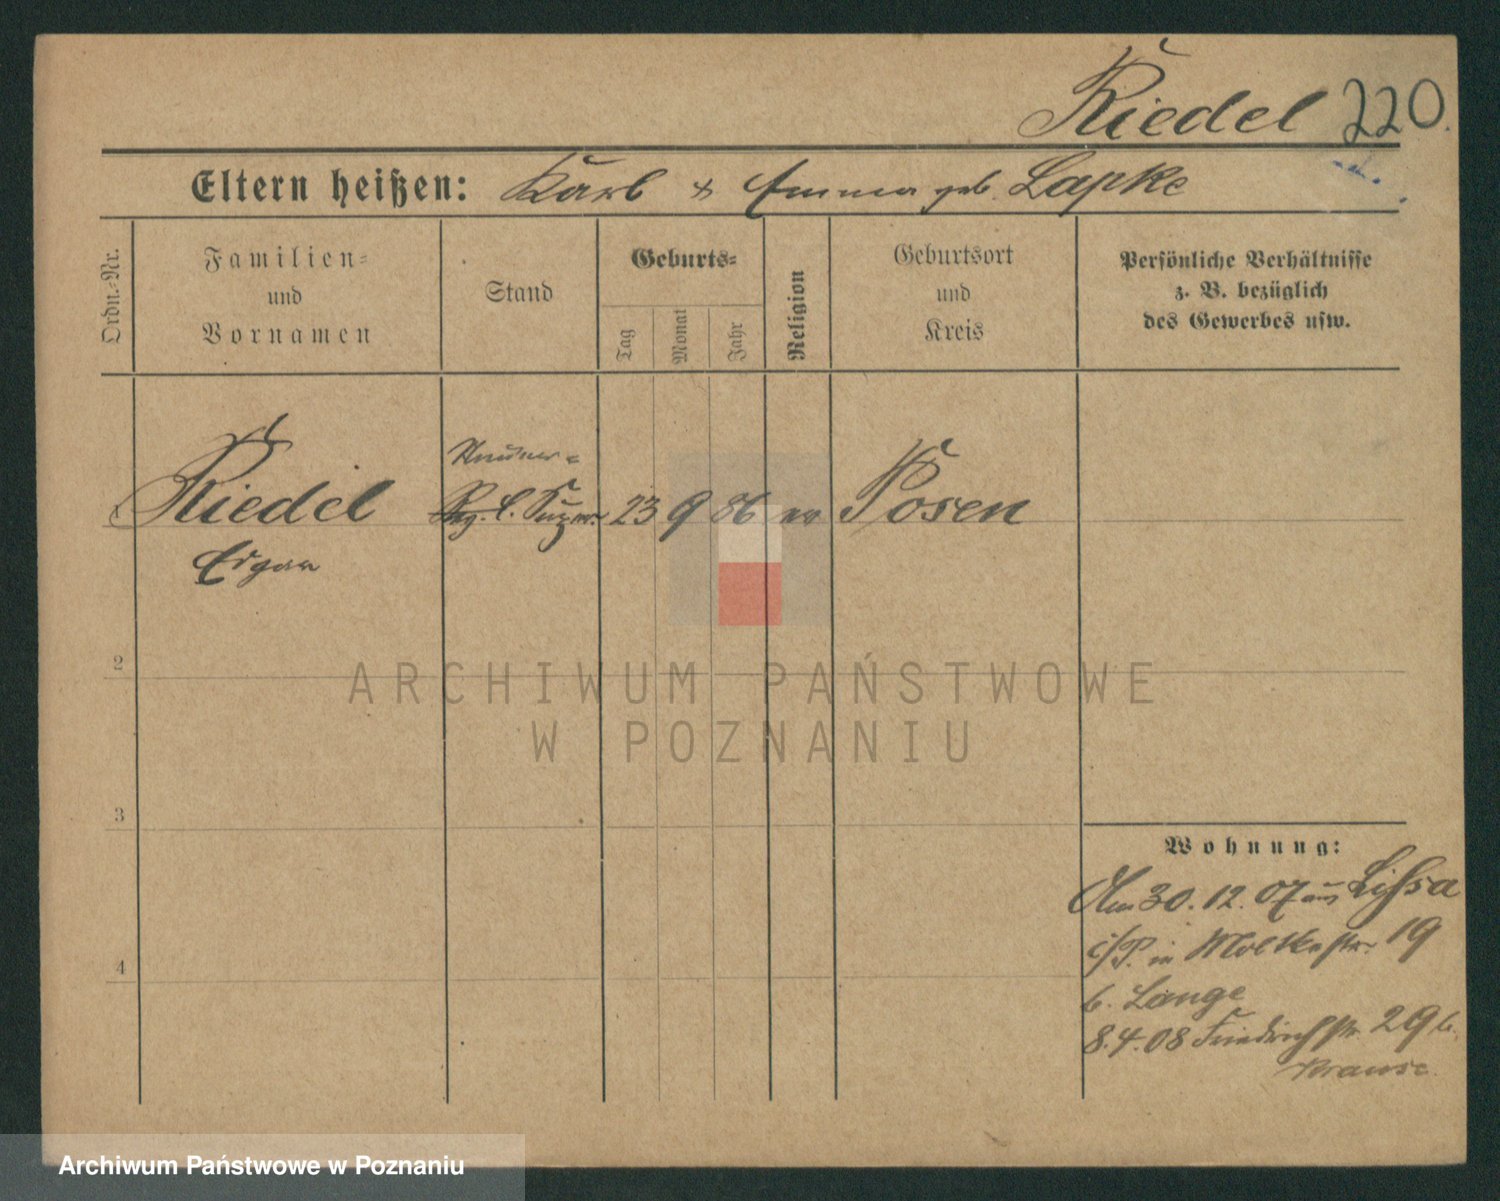 Riedel 220.
Eltern heißen: Karl & Emma geb. Lapke
Ordn.-Nr.
Familien-
und
Vornamen
Stand
Geburts-
Tag
Monat
Jahr
Religion
Geburtsort
und
Kreis
Persönliche Verhältnisse
z. B. bezüglich
des Gewerbes usw.
1 Riedel 23 9 86 ev Posen
Edgar
2
3
4
Wohnung:
Am 30.12.07 aus Lissa
i/P. in Moltkestr. 19
b. Lange
8.4.08 Friedrichstr. 29 b.
Krause
ARCHIWUM PAŃSTWOWE
W POZNANIU
Archiwum Państwowe w Poznaniu